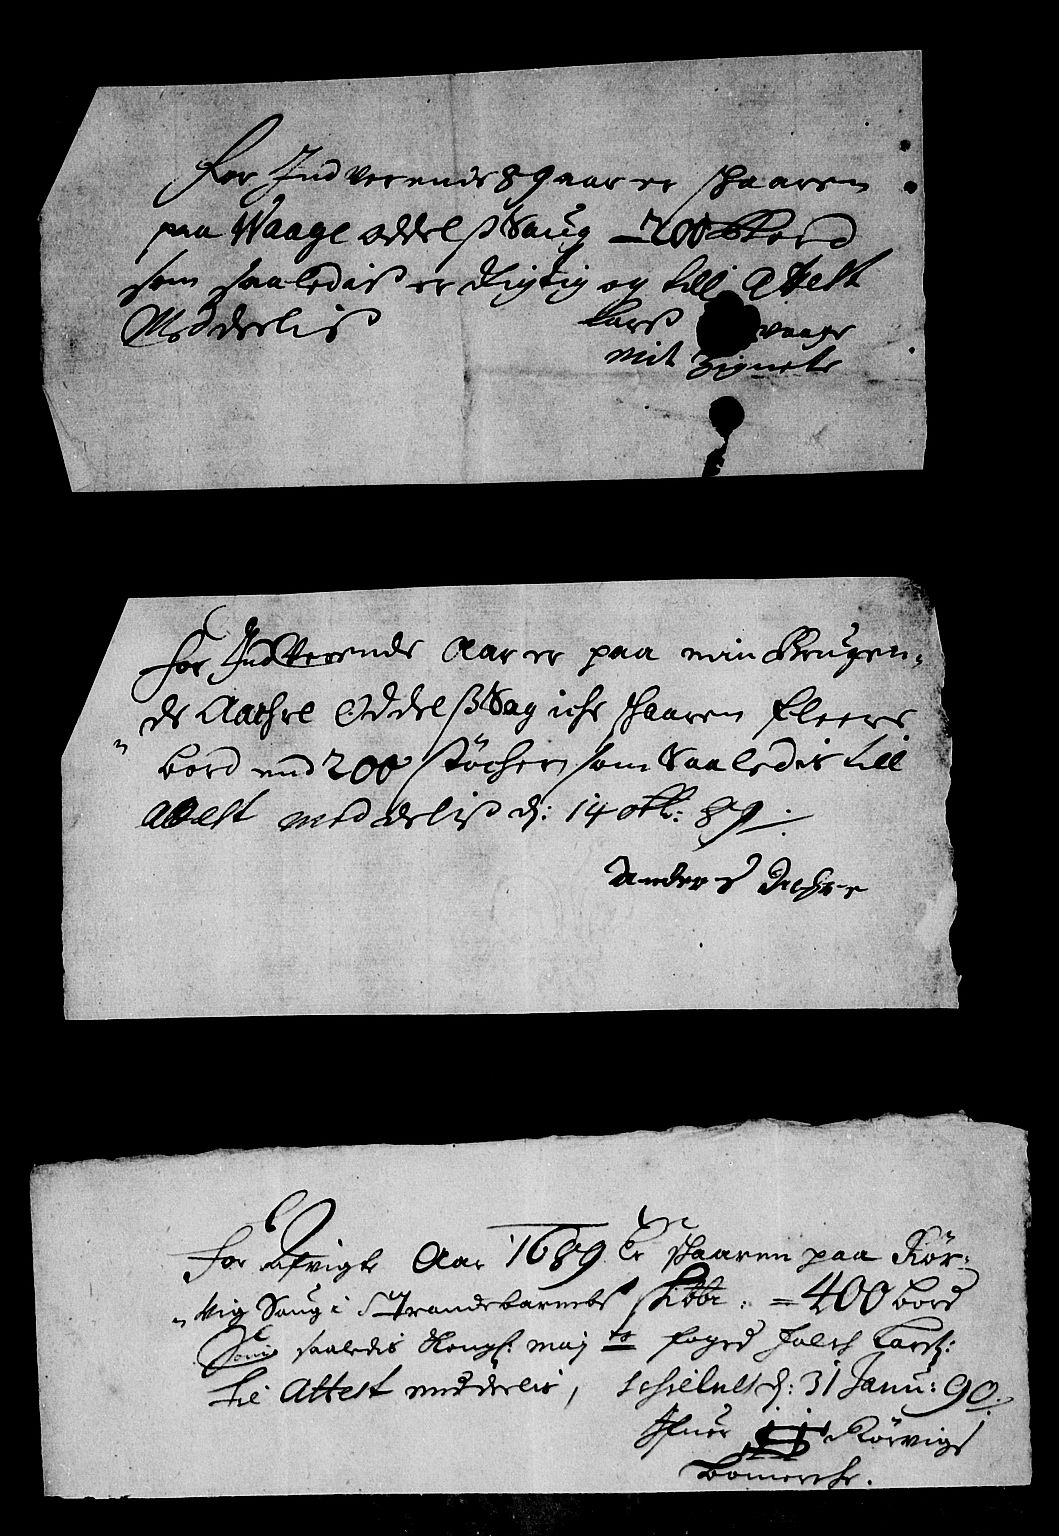 For Indverende 89 aar er skaaren
paa Waage oddelß Saug – 200 Bord
som saaledis er Rigtig og till Attest
Meddeliß Larß vaage
mit Zignete
for IndVerende Aar er paa min Brugen-
de Aachre Oddelß Sag iche skaaren fleere
bord end 200 støcher som Saaledis till
Attest meddeliß d: 14 oktb: 89
Anders Achre
For afvigte Aar 1689 Er skaaren paa Kör-
vig Saug i Strandebarmbs skibbr: = 400 bord
Som saaledis Kongl: maj ts foged Falch Larß:
til Attest meddelis, d: 31 Janu: 90
Ifuer Körvigs
bomerche.